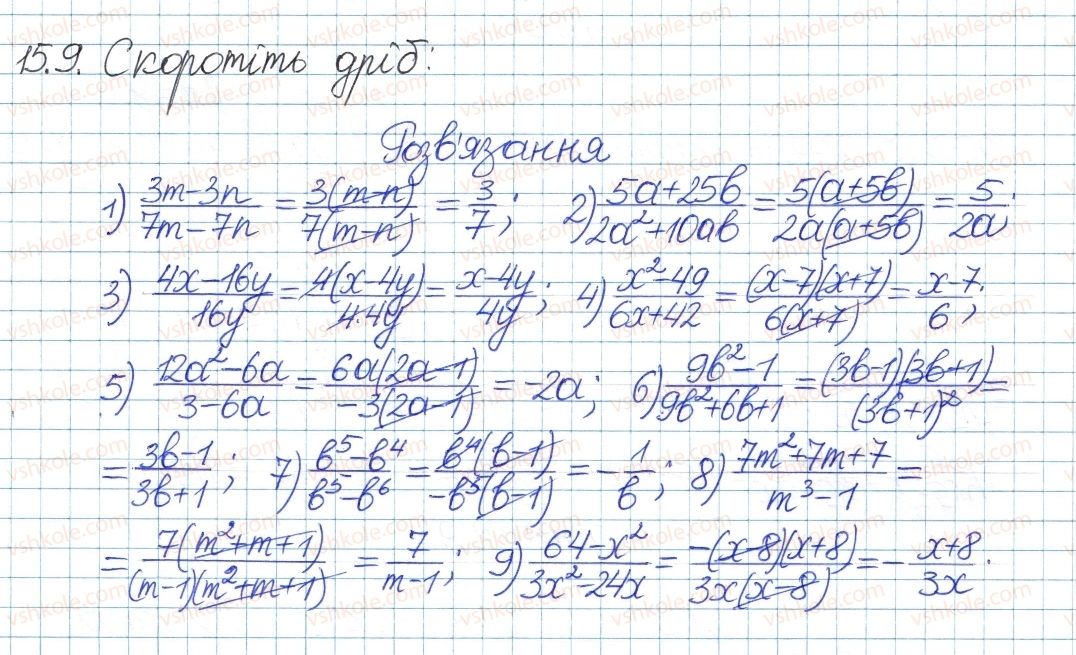 15.9. Скоротіть дріб:
Розв'язання
1) \frac{3m-3n}{7m-7n} = \frac{3(m-n)}{7(m-n)} = \frac{3}{7}; 2) \frac{5a+25b}{2a^2+10ab} = \frac{5(a+5b)}{2a(a+5b)} = \frac{5}{2a};
3) \frac{4x-16y}{16y} = \frac{4(x-4y)}{4·4y} = \frac{x-4y}{4y}; 4) \frac{x^2-49}{6x+42} = \frac{(x-7)(x+7)}{6(x+7)} = \frac{x-7}{6};
5) \frac{12a^2-6a}{3-6a} = \frac{6a(2a-1)}{-3(2a-1)} = -2a; 6) \frac{9b^2-1}{9b^2+6b+1} = \frac{(3b-1)(3b+1)}{(3b+1)^2} =
= \frac{3b-1}{3b+1}; 7) \frac{b^5-b^4}{b^5-b^6} = \frac{b^4(b-1)}{-b^5(b-1)} = -\frac{1}{b}; 8) \frac{7m^2+7m+7}{m^3-1} =
= \frac{7(m^2+m+1)}{(m-1)(m^2+m+1)} = \frac{7}{m-1}; 9) \frac{64-x^2}{3x^2-24x} = \frac{-(x-8)(x+8)}{3x(x-8)} = -\frac{x+8}{3x}.